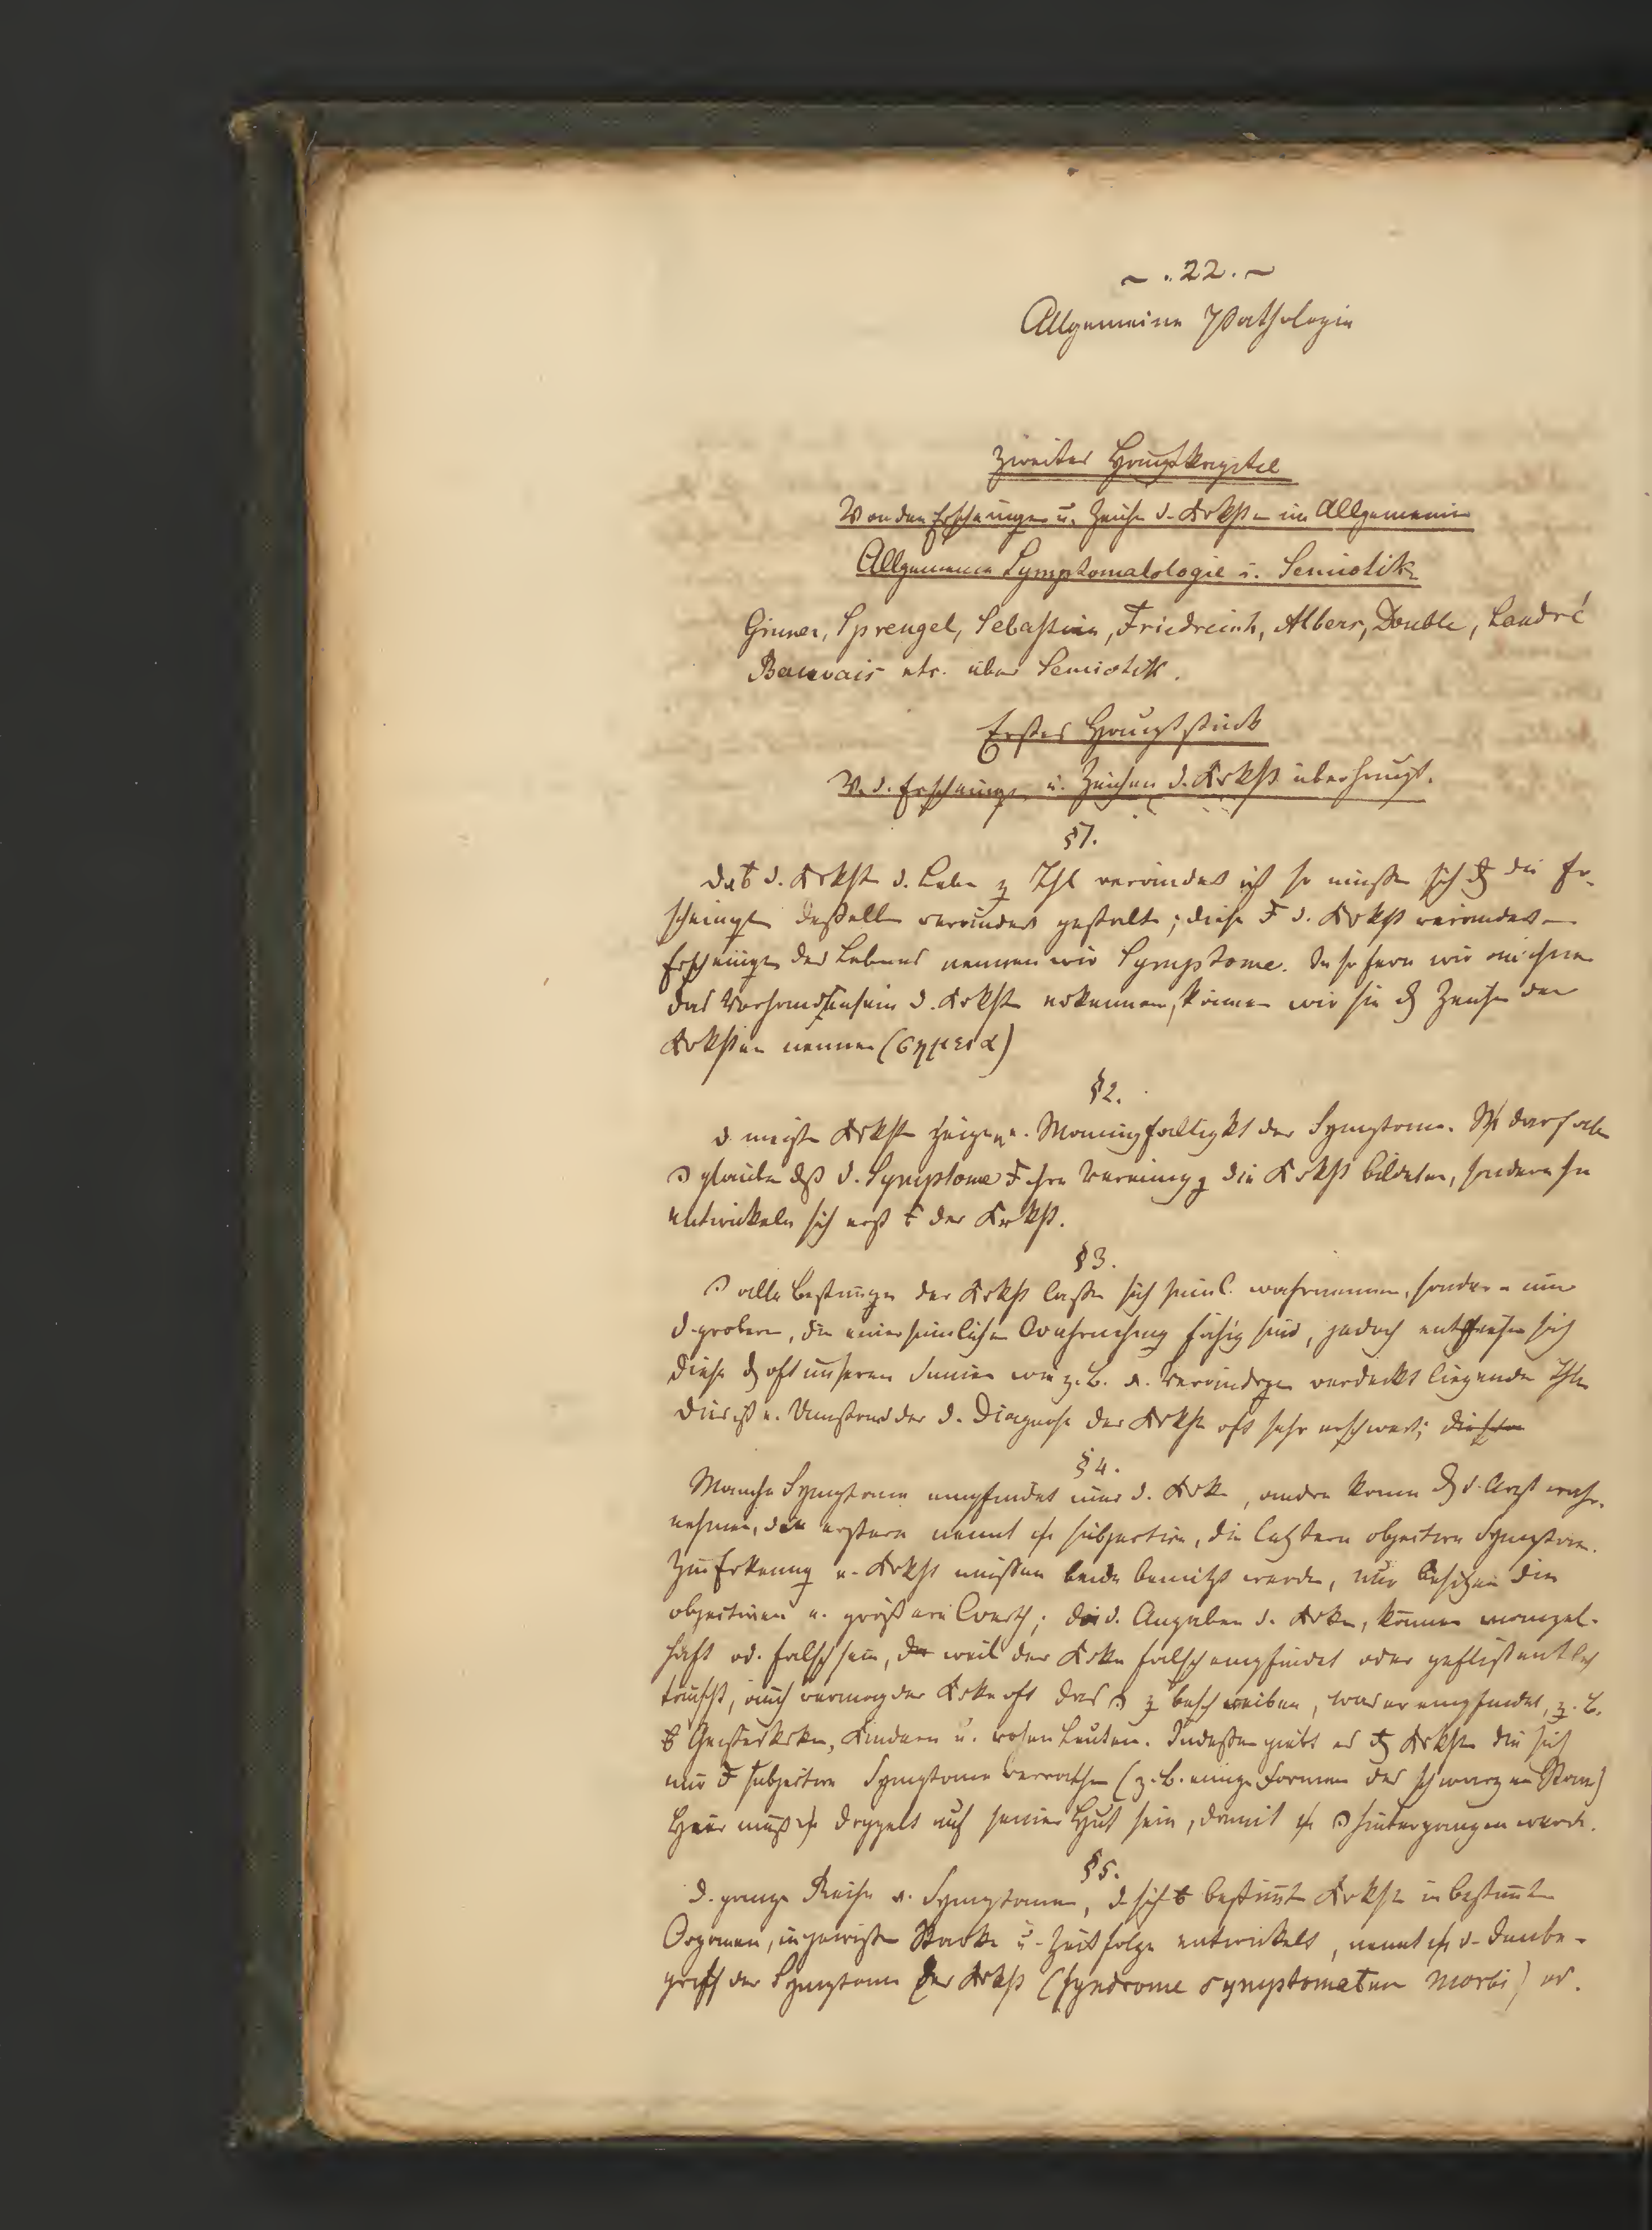 ~ . 22 . ~
Allgemeine Pathologie
Zweites Hauptkapitel
Von den Erscheinungen u. Zeichen d. Krkht im Allgemeinen
Allgemeine Symptomatologie u. Semiotik
Gruner, Sprengel, Sebastian, Friedreich, Albers, Double, Landré
Beauvais etc. über Semiotik.
Erstes Hauptstück
V. d. Erscheinungen u. Zeichen d. Krkht überhaupt.
§1.
d. Krkht d. Leben z. Thl verändert ist so müssen sich die Er-
scheingen desselben verändert gestalten; diese d. Krkht veränderten
Erscheingen des Lebens nennen wir Symptome. In so fern wir
das Vorhandensein d. Krkht erkennen, können wir sie Zeichen der
Krkhten nennen (σημεια)
§2.
d. meisten Krkhten zeigen e. Mannigfaltigkt der Symptome. darf aber
glauben dß d. Symptome ihre Vereinigg die Krkht bildeten, sondern sie
entwickeln sich erst der Krkht.
§3.
alle der Krkht lassen sich sinnl. wahrnemmen, sondern nur
d. grobern, die einer sinnlichen Wahrnehmung fähig sind, jedoch entziehen sich
diese oft unseren Sinnen wie z. B. verdeckt liegender Thle
Dies ist e. Umstand der d. Diagnose der Krkht oft sehr erschwert;
§4.
Manche Symptome empfindet nur d. Krke, andere kann d. Arzt wahr-
nehmen, die erstern nennt subjective, die letztern objective Symptome.
Zur Erkenng e. Krkht müssen beide benützt werden, nur besitzen die
objectiven e. größern Werth; d. Angaben d. Krken, können mangel-
haft od. falsch sein, weil der Krke falsch empfindet oder geflissentlich
täuscht, auch vermag der Krke oft das z beschreiben, was er empfindet, z. B.
Geisteskrken, Kindern u. rohen Leuten. Indessen giebt es Krkhten die sich
nur subjective Symptome verrathen (z. B. einige Formen des schwarzen Staars)
Hier muß doppelt auf seiner Hut sein, damit hintergangen werde.
§5.
d. ganze Reihe v. Symptomen, d. sich bestimmt Krkht in bestimmt
Organen, in gewisser Stärke u. Zeitfolge entwickelt, nennt d. Inbe-
griff der Symptome der Krkht (Syndrome symptomatum morbi) od.